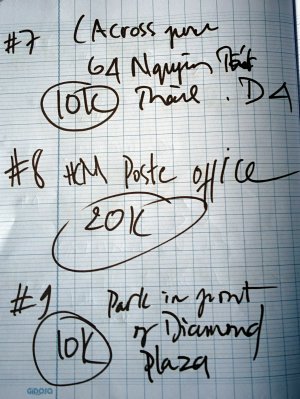 #7 (Across from
64 Nguyễn Tất
10K Thành . D4
#8 HCM Poste office
20K
#9 Park in front
of Diamond
10K Plaza